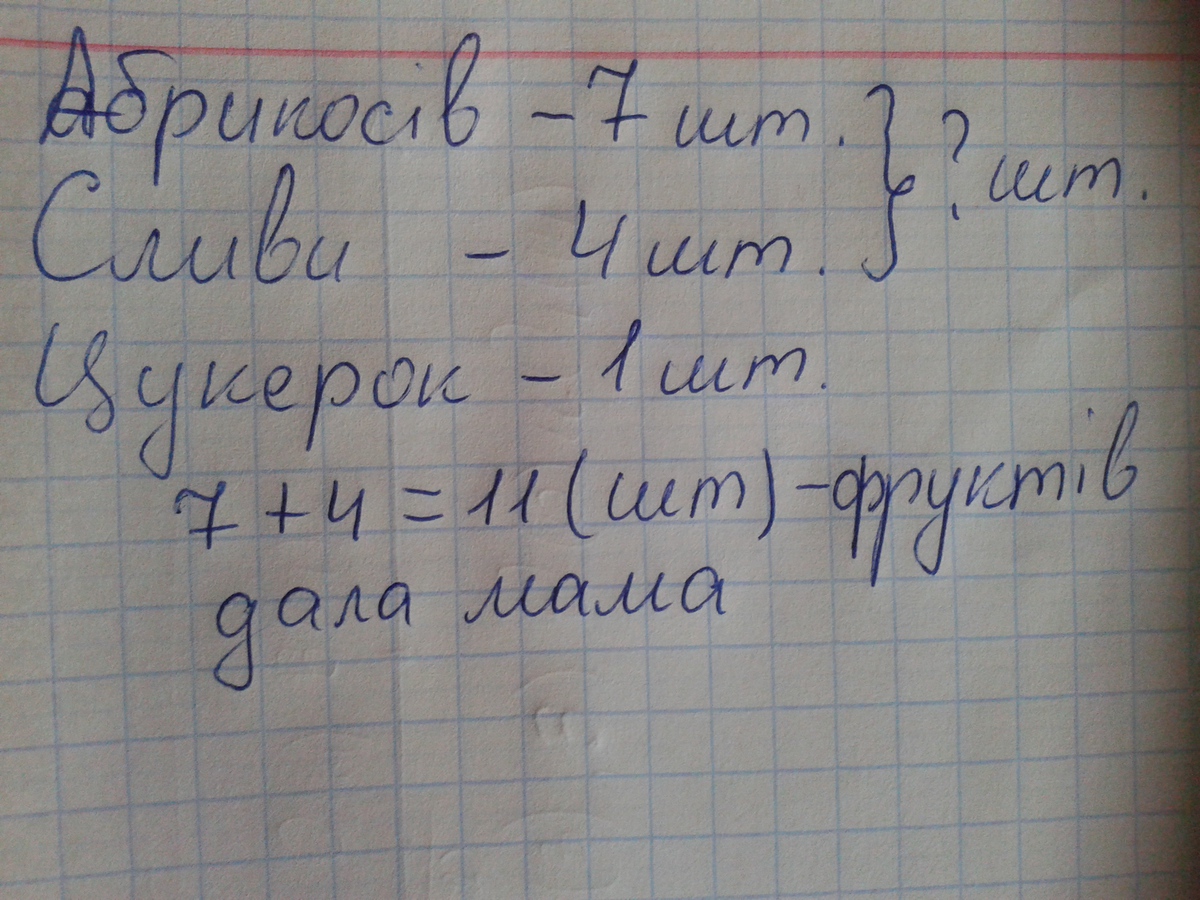 Абрикосів - 7 шт. } ? шт.
Сливи - 4 шт.
Цукерок - 1 шт.
7 + 4 = 11 (шт) - фруктів
дала мама